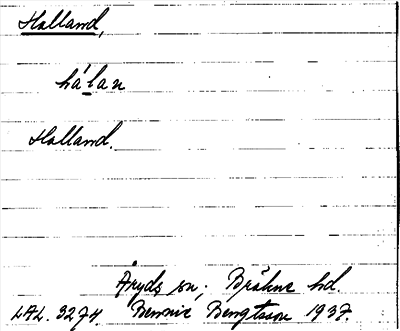 Holland,
hálan
Holland.
Åryds sn; Bräkne hd.
LAL. 3274. Bennie Bengtsson 1937.